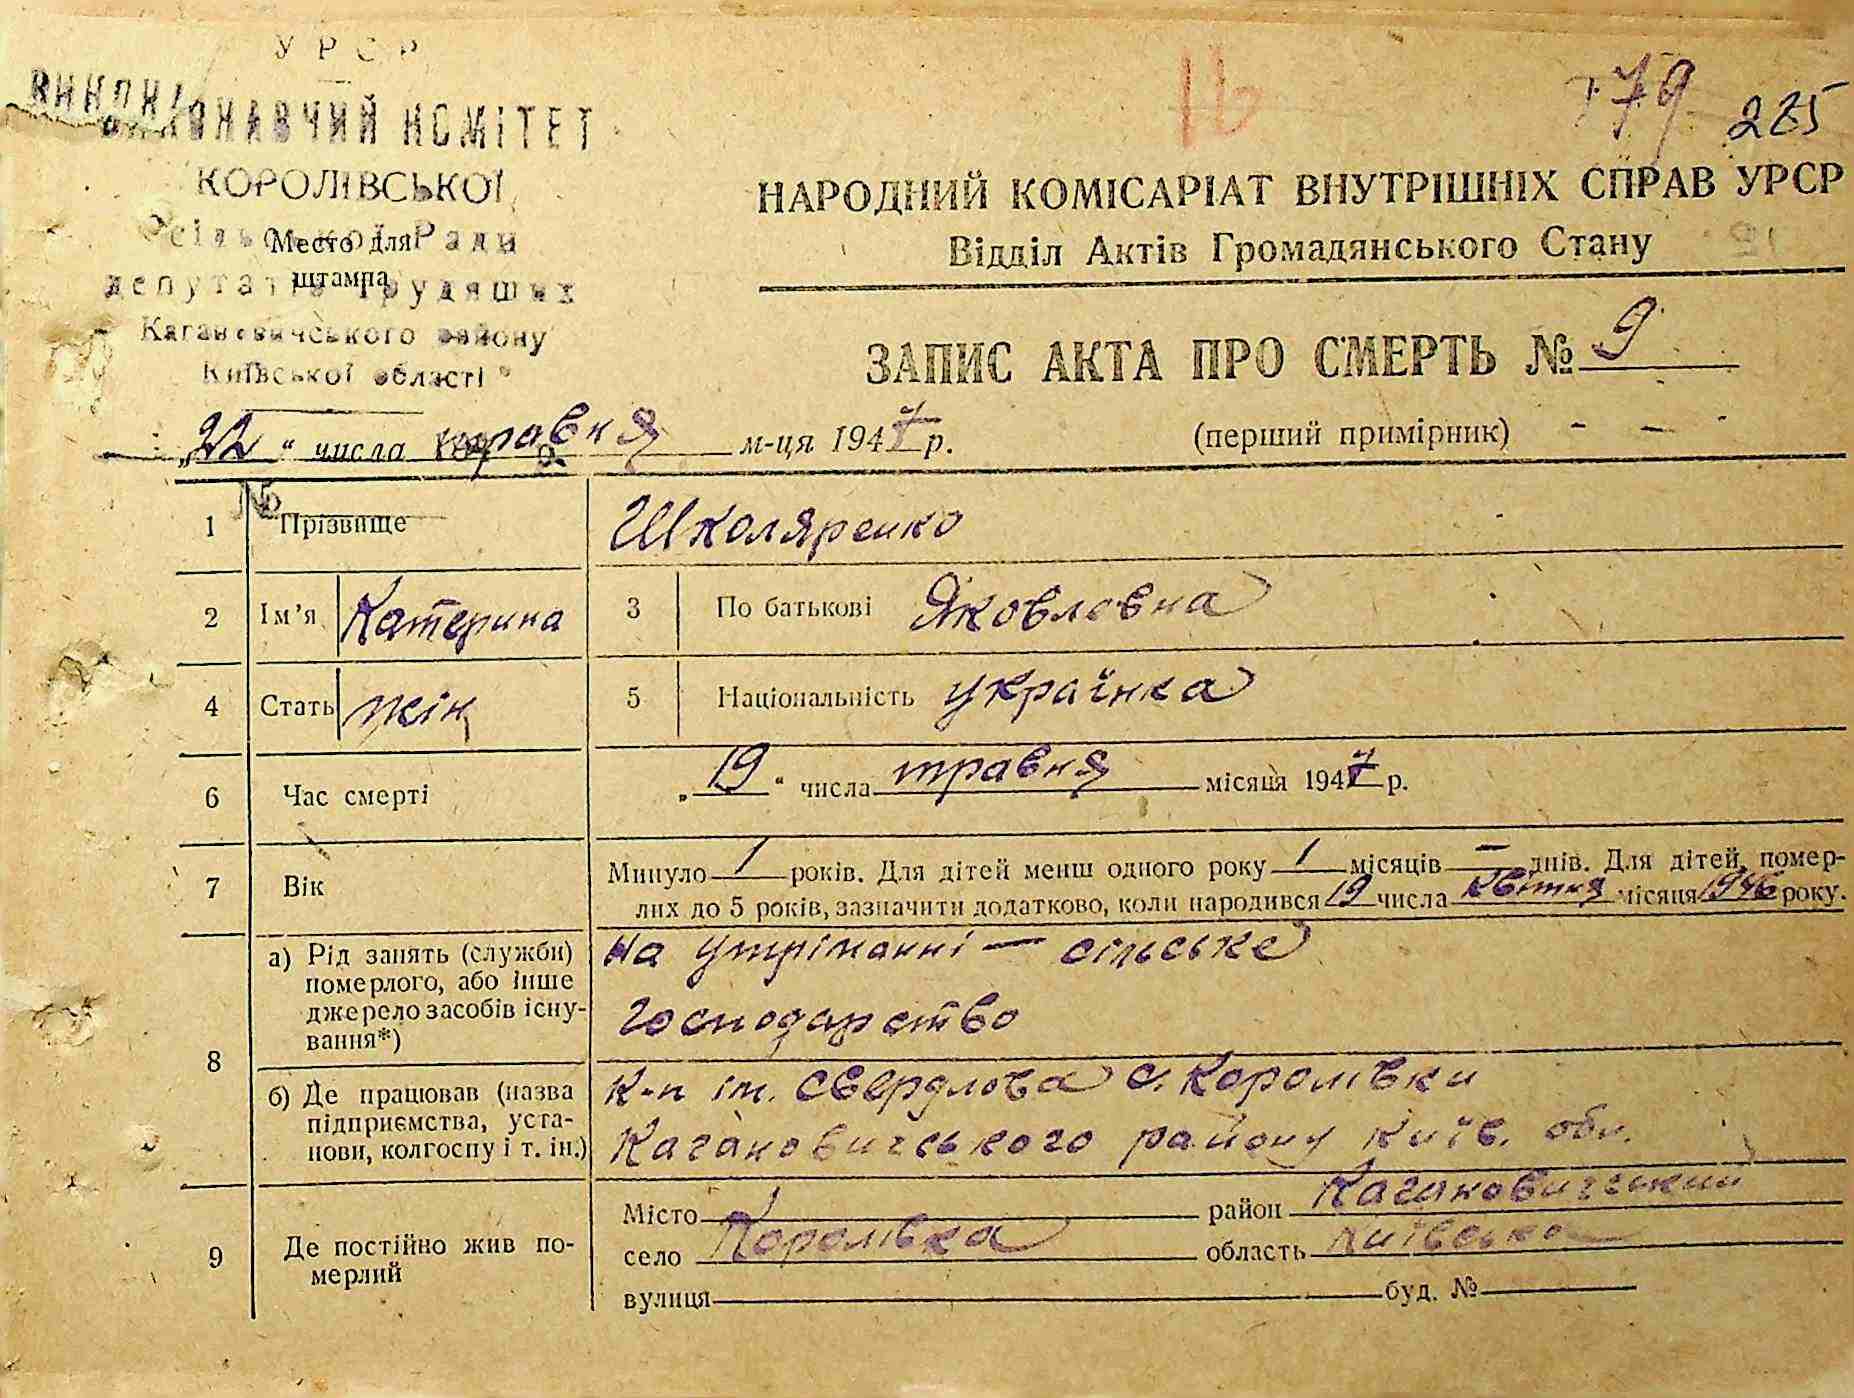 УРСР
ВИКОНАВЧИЙ КОМІТЕТ
КОРОЛІВСЬКОЇ
сільської Ради
Место для
штампа
депутатів трудящих
Кагановичського району
Київської області
179 225
НАРОДНИЙ КОМІСАРІАТ ВНУТРІШНІХ СПРАВ УРСР
Відділ Актів Громадянського Стану
ЗАПИС АКТА ПРО СМЕРТЬ № 9
„22“ числа травня м-ця 1947 р.
(перший примірник)
№
1 Прізвище Школяренко
2 Ім'я Катерина 3 По батькові Яковловна
4 Стать жін 5 Національність українка
6 Час смерті „19“ числа травня місяця 1947 р.
7 Вік Минуло 1 років. Для дітей менш одного року 1 місяців — днів. Для дітей, помер-
лих до 5 років, зазначити додатково, коли народився 19 числа квітня місяця 1946 року.
8 а) Рід занять (служби) померлого, або інше джерело засобів існу-вання*) на утріманні — сільське
господарство
б) Де працював (назва підприємства, уста-нови, колгоспу і т. ін.) к-п ім. Свердлова с. Королівки
Кагановичського району Київ. обл.
9 Де постійно жив по-мерлий Місто район Кагановичський
село Королівка область Київська
вулиця буд. №